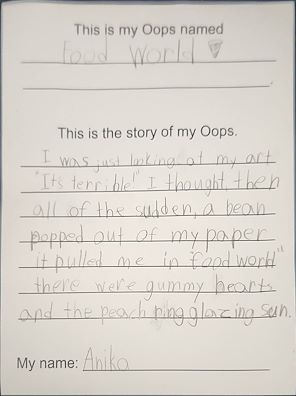 This is my Oops named
Food World
This is the story of my Oops.
I was just looking at my art
"It's terrible" I thought, then
all of the sudden, a bean
popped out of my paper
it pulled me in "food world"
there were gummy hearts
and the peach ring glazing sun.
My name: Anika